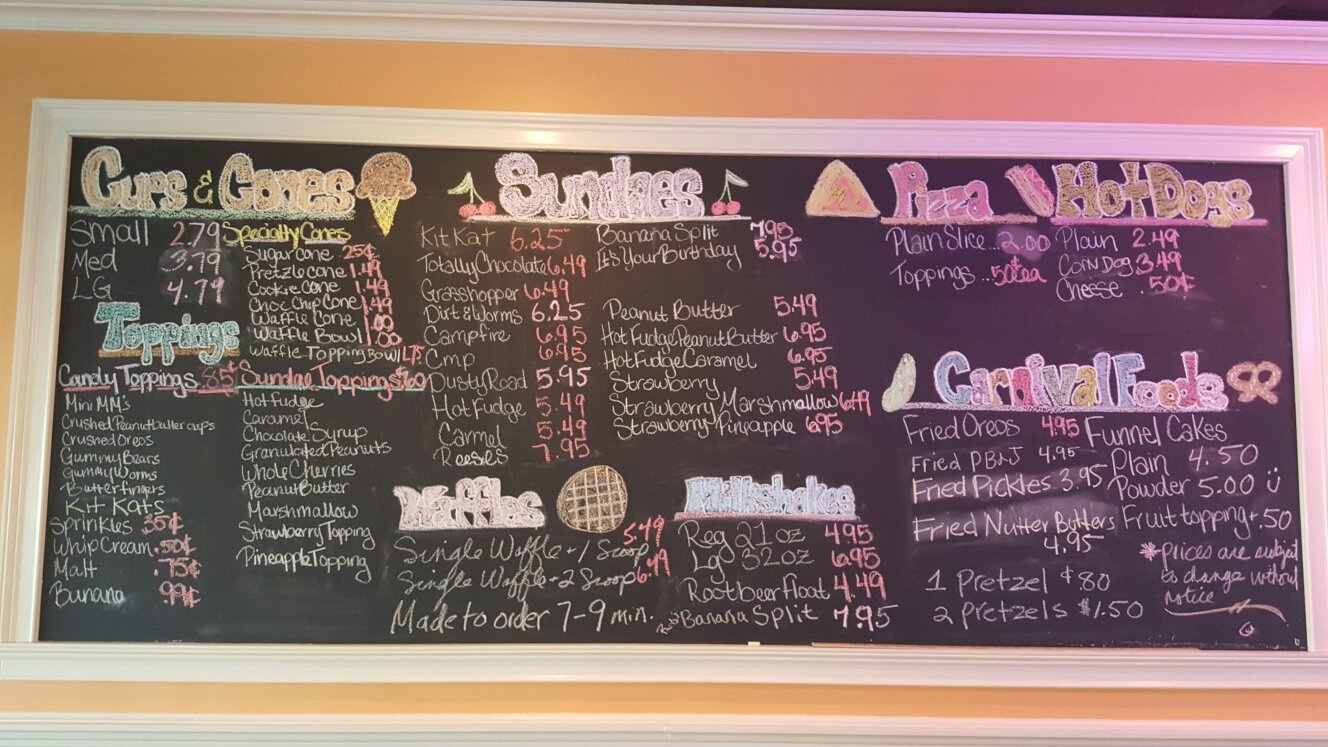 Cups & Cones
Small 2.79
Med 3.79
LG 4.79
Specialty Cones
Sugar cone .25¢
Pretzle cone 1.49
Cookie Cone 1.49
Choc Chip Cone 1.49
Waffle Cone 1.00
Waffle Bowl 1.00
Waffle Topping Bowl 1.75
Toppings
Candy Toppings .85¢
Mini MM's
Crushed Peanut butter cups
Crushed Oreos
Gummy Bears
Gummy Worms
Butterfingers
Kit Kats
Sprinkles 35¢
Whip Cream .50¢
Malt .75¢
Banana .99¢
Sundae Toppings
Hot Fudge
Caramel
Chocolate Syrup
Granulated Peanuts
Whole Cherries
Peanut Butter
Marshmallow
Strawberry Topping
Pineapple Topping
Sundaes
Kit Kat 6.25
Totally Chocolate 6.49
Grasshopper 6.49
Dirt & Worms 6.25
Campfire 6.95
Cmp 6.95
Dusty Road 5.95
Hot Fudge 5.49
Carmel 5.49
Reeses 7.95
Banana Split 7.95
It's Your Birthday 5.95
Peanut Butter 5.49
Hot Fudge Peanut Butter 6.95
Hot Fudge Caramel 6.95
Strawberry 5.49
Strawberry Marshmallow 6.49
Strawberry Pineapple 6.95
Waffles
Single Waffle + 1 Scoop 5.49
Single Waffle + 2 Scoop 6.49
Made to order 7-9 min.
Milkshakes
Reg 21 oz 4.95
Lg 32 oz 6.95
Rootbeer float 4.49
Banana Split 7.95
Pizza
Plain Slice... 2.00
Toppings ...50¢ea
Hot Dogs
Plain 2.49
Corn Dog 3.49
Cheese .50¢
Carnival Foods
Fried Oreos 4.95
Fried PB&J 4.95
Fried Pickles 3.95
Fried Nutter Butters
4.95
1 Pretzel $.80
2 pretzels $1.50
Funnel Cakes
Plain 4.50
Powder 5.00
Fruit topping + .50
*prices are subject
to change without
notice